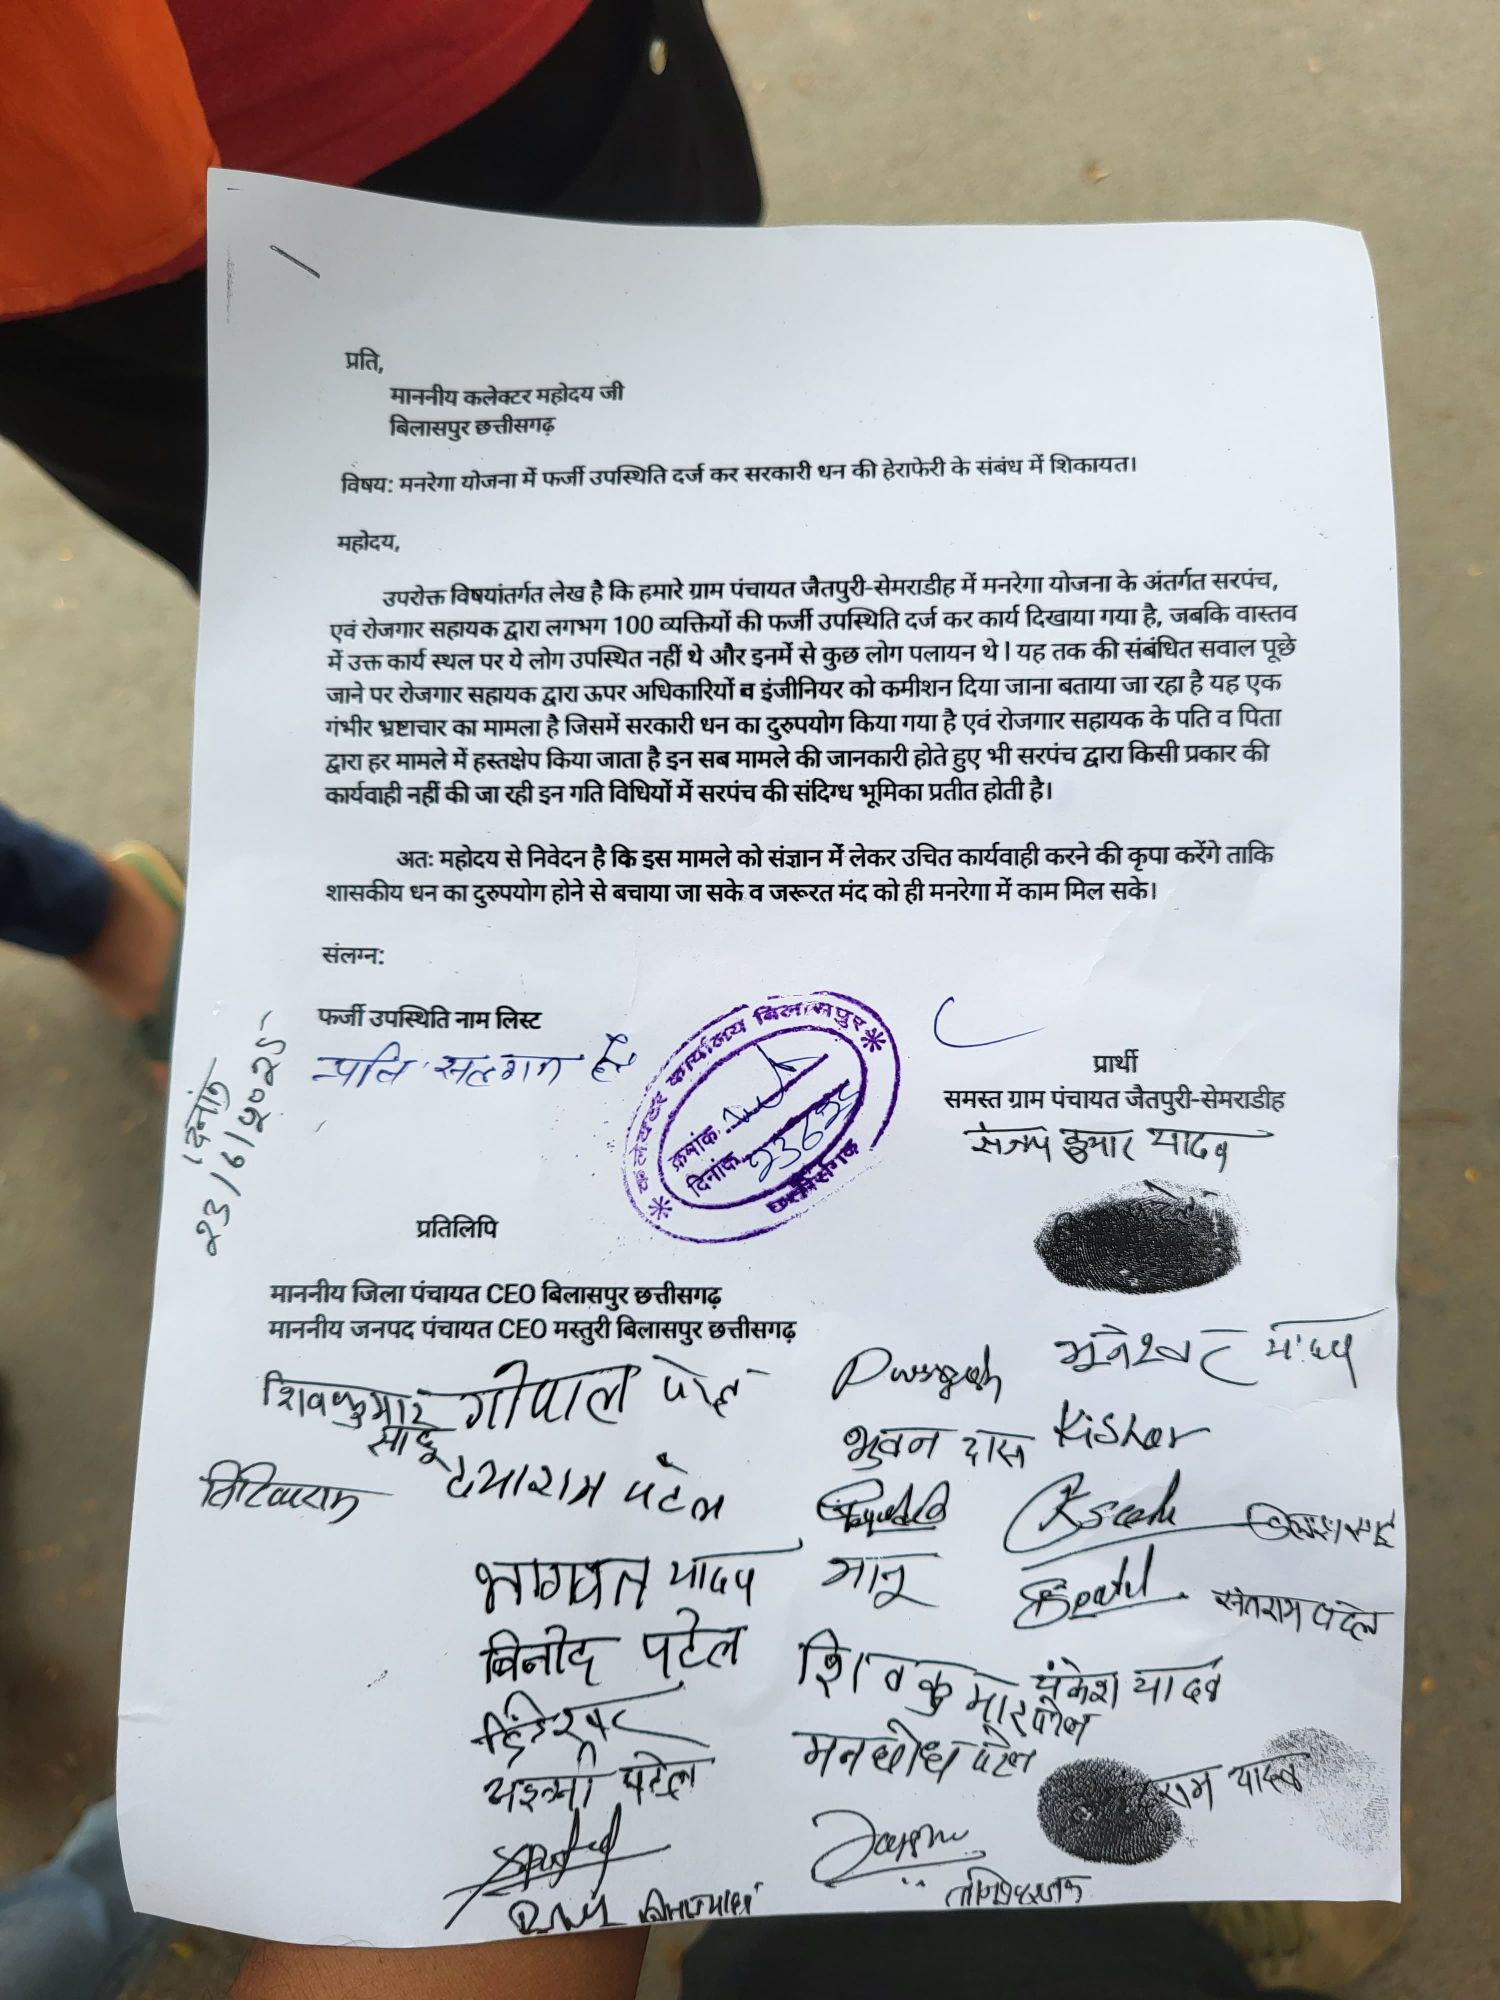 प्रति,
माननीय कलेक्टर महोदय जी
बिलासपुर छत्तीसगढ़
विषय: मनरेगा योजना में फर्जी उपस्थिति दर्ज कर सरकारी धन की हेराफेरी के संबंध में शिकायत।
महोदय,
उपरोक्त विषयांतर्गत लेख है कि हमारे ग्राम पंचायत जैतपुरी-सेमराडीह में मनरेगा योजना के अंतर्गत सरपंच,
एवं रोजगार सहायक द्वारा लगभग 100 व्यक्तियों की फर्जी उपस्थिति दर्ज कर कार्य दिखाया गया है, जबकि वास्तव
में उक्त कार्य स्थल पर ये लोग उपस्थित नहीं थे और इनमें से कुछ लोग पलायन थे। यह तक की संबंधित सवाल पूछे
जाने पर रोजगार सहायक द्वारा ऊपर अधिकारियों व इंजीनियर को कमीशन दिया जाना बताया जा रहा है यह एक
गंभीर भ्रष्टाचार का मामला है जिसमें सरकारी धन का दुरुपयोग किया गया है एवं रोजगार सहायक के पति व पिता
द्वारा हर मामले में हस्तक्षेप किया जाता है इन सब मामले की जानकारी होते हुए भी सरपंच द्वारा किसी प्रकार की
कार्यवाही नहीं की जा रही इन गति विधियों में सरपंच की संदिग्ध भूमिका प्रतीत होती है।
अतः महोदय से निवेदन है कि इस मामले को संज्ञान में लेकर उचित कार्यवाही करने की कृपा करेंगे ताकि
शासकीय धन का दुरुपयोग होने से बचाया जा सके व जरूरत मंद को ही मनरेगा में काम मिल सके।
संलग्न:
फर्जी उपस्थिति नाम लिस्ट
प्रति सलगन है
दिनांक
23/6/2025
कलेक्टर कार्यालय बिलासपुर
क्रमांक
दिनांक
छत्तीसगढ़
प्रार्थी
समस्त ग्राम पंचायत जैतपुरी-सेमराडीह
संजय कुमार यादव
प्रतिलिपि
माननीय जिला पंचायत CEO बिलासपुर छत्तीसगढ़
माननीय जनपद पंचायत CEO मस्तुरी बिलासपुर छत्तीसगढ़
भुनेश्वर यादव
शिवकुमार साहू
गोपाल
भुवन दास
Kishor
दयाराम पटेल
भागवत यादव
भानू
संतराम पटेल
विनोद पटेल
शिवकुमार पटेल
मुकेश यादव
मनबोध पटेल
पटेल
राम यादव